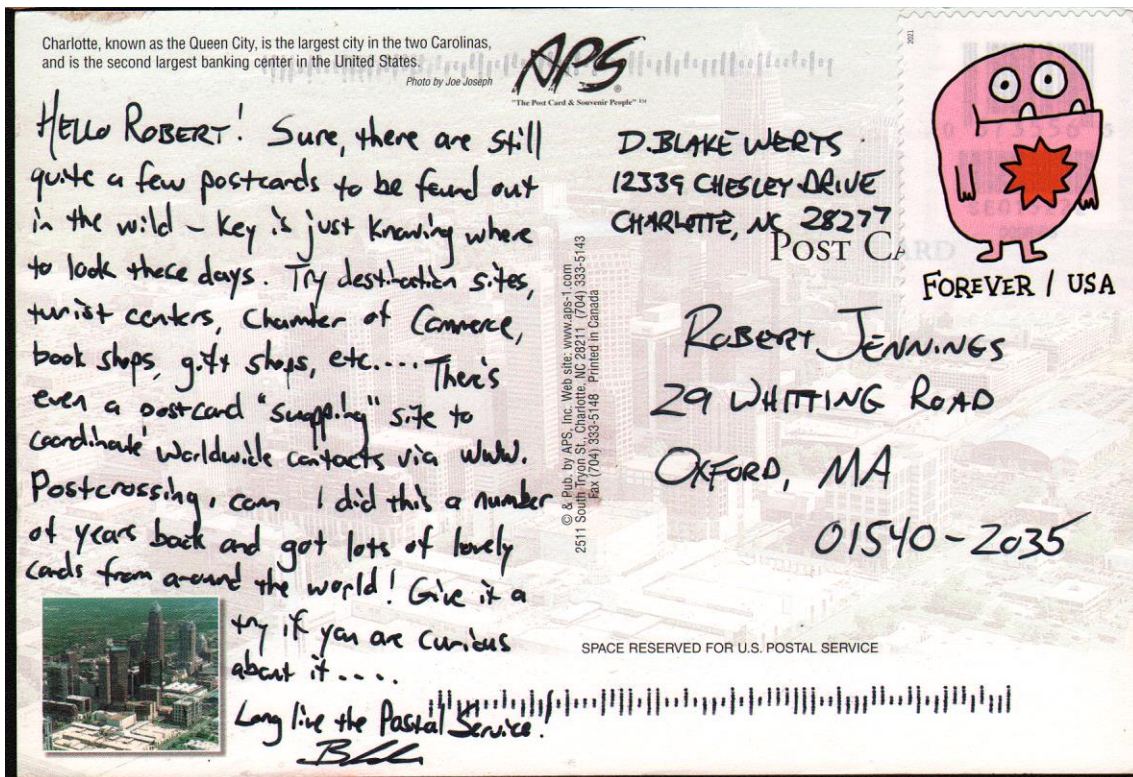 Charlotte, known as the Queen City, is the largest city in the two Carolinas,
and is the second largest banking center in the United States.
Photo by Joe Joseph
APS®
"The Post Card & Souvenir People" ™
HELLO ROBERT! Sure, there are still
quite a few postcards to be found out
in the wild – key is just knowing where
to look these days. Try destination sites,
turist centers, Chamber of Commerce,
book shops, gift shops, etc.... There's
even a postcard "swapping" site to
coordinate worldwide contacts via www.
Postcrossing.com I did this a number
of years back and got lots of lovely
cards from around the world! Give it a
try if you are curious
about it....
Long live the Postal Service!
© & Pub. by APS, Inc. Web site: www.aps-1.com
2511 South Tryon St., Charlotte, NC 28211 (704) 333-5143
Fax (704) 333-5148 Printed in Canada
D. BLAKE WERTS
12339 CHESLEY DRIVE
CHARLOTTE, NC 28277
POST CARD
2021
FOREVER / USA
ROBERT JENNINGS
29 WHITTING ROAD
OXFORD, MA
01540-2035
SPACE RESERVED FOR U.S. POSTAL SERVICE